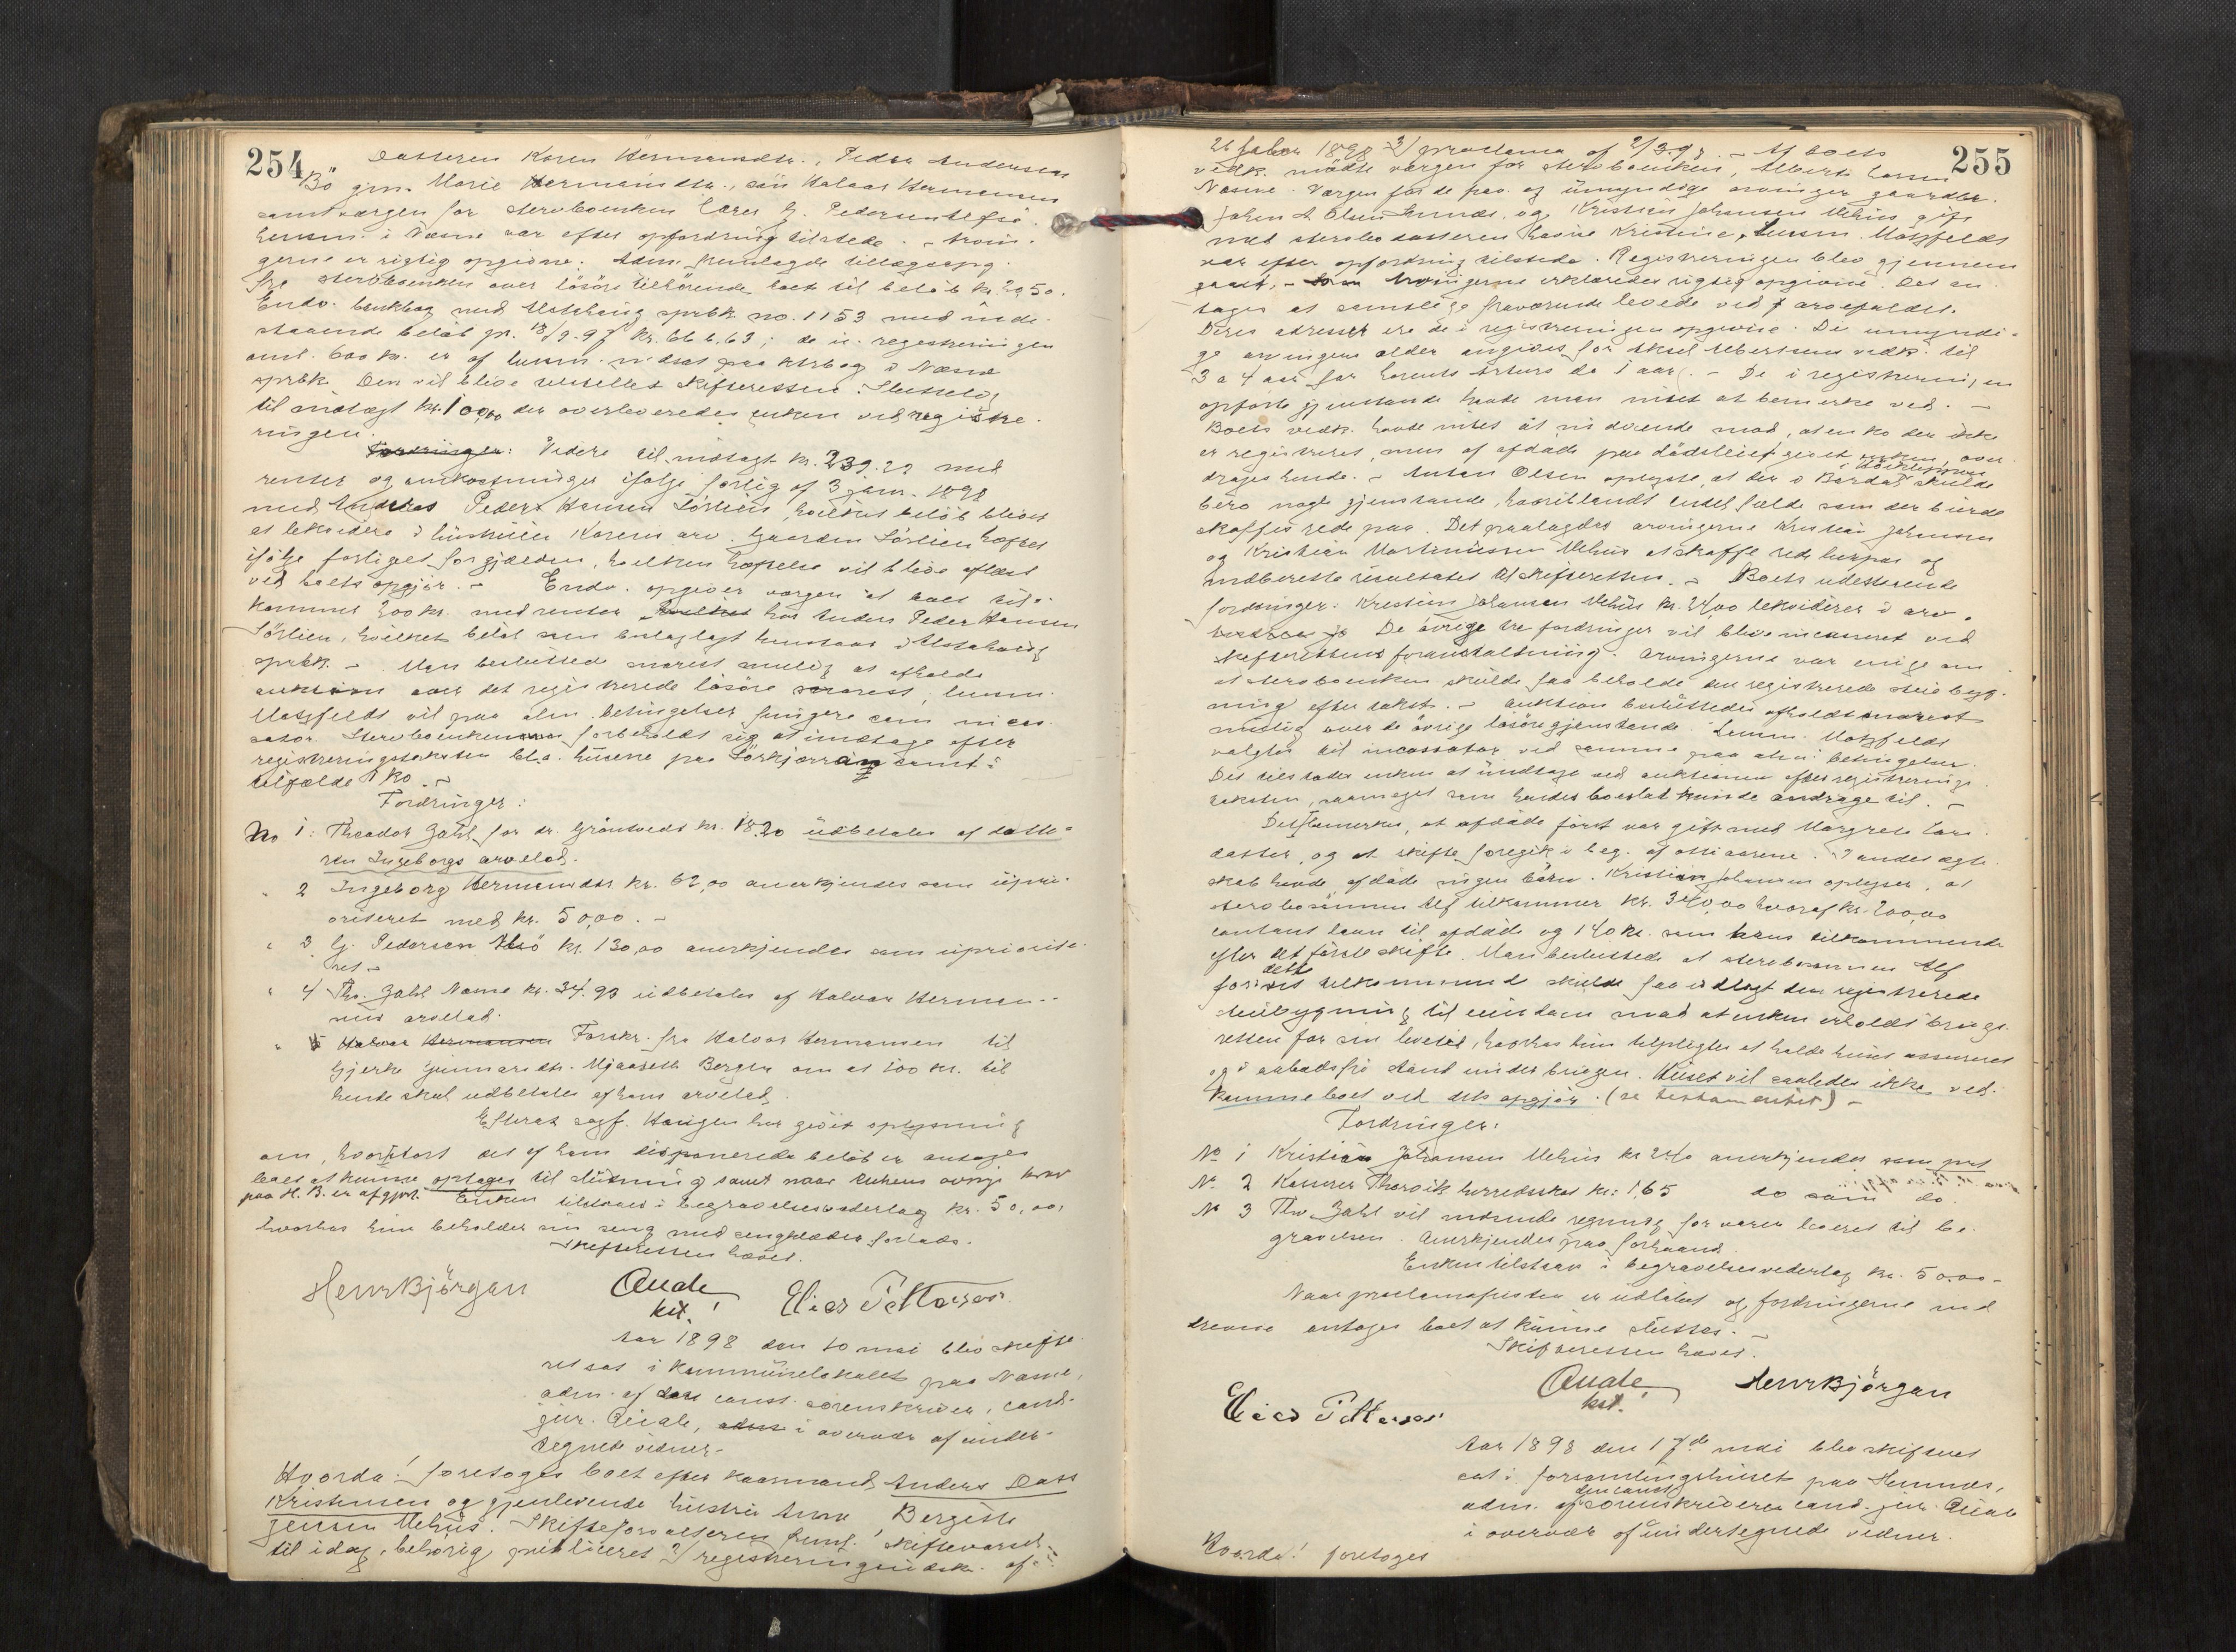 254
datteren Karen Hermansdtr., Peder Andersen
Bö gm. Marie Hermansdtr., sön Halvar Hermansen
samt værgen for sterboenken G. Pedersen
i Næsne var efter opfordring tilstede. - Arvin-
gerne er rigtig opgivne. Adm. fremlagde tillægsopg.
fra sterboenken over lösöre tilhörende boet til belöb kr. 29,50.
Endv. bankbog med Alstahaug sprbk no. 1153 med inde-
staaende belöb pr. kr. 666.63; de i registreringen
omt. 600 kr. er af lensm. indsat paa ktrbog i Næsne
sprbk. Den vil blive tilstillet skifteretten. Slutteligt
til indtægt kr. 100,00 der overleveredes enken ved registre-
ringen.
Fordringer: Videre til indtægt kr. 239.22 med
renter og omkostninger ifölge forlig af 3 janr. 1898
med Anders Peder Hansen Sörlien, hvilket belöb bliver
at lekvidere i hustruen Karens arv. Gaarden Sörlien hæftet
ifölge forliget for gjælden, hvilken hæftelse vil blive aflæst
ved boets opgjör. - Endv. opgiver værgen at boet til-
kommer 200 kr. med renter hvilket hos Anders Peder Hansen
Sörlien, hvilket belöb som beslaglagt henstaar i Alstahaug
sprbk. - Man besluttede snarest mulig at afholde
auktion over det registrerede lösöre snarest, lensm.
Motzfeldt vil paa alm. betingelser fungere som incas-
sator. Sterboenken forbeholdt sig at indtage efter
registreringstaksten bl.a. husene paa Sörkjærran samt i
tilfælde 1 ko. -
Fordringer:
No 1: Theodor Zahl for dr. Gröntvedt kr. 18.20 udbetales af datte-
ren Ingeborgs arvelod.
" 2 Ingeborg Hermansdtr. kr. 62,00 anerkjendes som upri-
oriteret med kr. 50,00. -
" 3 G. Pedersen kr. 130,00 anerkjendes som upriorite-
ret -
" 4 Th. Zahl Næsne kr. 34.93 udbetales af Halvar Herman-
sens arvelod.
" 5 Halvar Hermansen Forskr. fra Halvar Hermansen til
Gjerke Gunnarsdtr. Mjaaseth Bergen om at 100 kr. til
hende skal udbetales af hans arvelod.
Efterat sagf. Haugen har givet oplysning
om, hvorstort det af ham disponerede belöb er antages
boet at kunne optages til slutning samt naar enkens övrige krav
paa H. B. er afgjort. Enken tilstaaes i begravelsesvederlag kr. 50,00,
hvorhos hun beholder sin seng med sengklæder forlods.
Skifteretten hævet.
Henr Bjørgan Quale kst. Elias Pettersen
Aar 1898 den 10 mai blev skifte-
ret sat i kommunelokalet paa Næsne,
adm. af den const. sorenskriver, cand.
jur. Quale, adm. i overvær af under-
tegnede vidner. -
Hvorda! foretoges boet efter kaarmand Anders Dass
Kristensen og gjenlevende hustru Anne Bergitte
Jensen Mehus. Skifteforvalteren freml. 1/ skiftevarsel
til idag, behörig publiceret 2/ registreringsudskr. af
255
26 febr 1898 3/ proclama af 2/3.98. - Af boets
vedk. mödte værgen for sterboenken, Albert Larsen
Næsne. Værgen for de frav. og umyndige arvinger gaardbr.
Johan A Olsen og Kristian Johansen Mehus gift
med sterbodatteren Hanne Kristine, Lensm. Motzfeldt
var efter opfordring tilstede. Registreringen blev gjennem-
gaaet, - Arvingerne erklæredes rigtig opgivne. Det an-
tages at samtlige fraværende levede ved arvefaldet.
Deres adresser ere de i registreringen opgivne. De umyndi-
ge arvingers alder angives for Aksel Albertsens vedk. til
3 a 4 aar for Lorents Arturs do 1 aar. - De i registreringen
opförte gjenstande havde man intet at bemerke ved. -
Boets vedk. havde intet at indvende mod, at en ko der ikke
er registreret, men af afdöde paa dödsleiet givet enken, over-
drages hende. - Anton Olsen oplyste, at der i Bardal i Leirskaren skulde
bero nogle gjenstande, hvoriblandt endel fælde som der burde
skaffes rede paa. Det paalagdes arvingerne Kristian Johansen
og Kristian Martinussen Mehus at skaffe rede herpaa og
indberette resultatet til skifteretten. - Boets udestaaende
fordringer: Kristian Johansen Mehus kr. 24,00 lekviderer i arv.
De övrige tre fordringer vil blive incasseret ved
skifterettens foranstaltning. Arvingerne var enige om
at sterboenken skulde faa beholde den registrerede stuebyg-
ning efter takst. - Auktion besluttedes afholdt snarest
mulig over de övrige lösöregjenstande. Lensm. Motzfeldt
valgtes til incassator ved samme paa alm. betingelser.
Det tilstodes enken at indtage ved auktionen efter registrerings-
taksten, saameget som hendes boeslod kunde andrage til. -
Det bemerkes, at afdöde först var gift med Margrete Lars-
datter, og at skifte foregik i beg. af ottiaarene. I andet ægte-
skab havde afdöde ingen börn. Kristian Johansen oplyser, at
sterbosönnen Alf tilkommer kr. 340,00 hvoraf kr. 200,00
contant laan til afdöde og 140 kr. som hans tilkommende
efter det förste skifte. Man besluttede at sterbosönnen Alf
for dette tilkommend skulde faa udlagt den registrerede
stuebygning til eiendom mod at enken erholdt brugs-
retten for sin levetid, hvorhos hun tilpligtes at holde huset assureret
og i aabodsfri stand under brugen. Huset vil saaledes ikke ved-
komme boet ved dets opgjör. (se testamentet) -
Fordringer:
No 1 Kristian Johansen Mehus kr 240 anerkjendes som
No 2 Kasserer Thorvik herredsskat kr: 1,65 do som do.
No 3 Thv Zahl vil indsende regning for varer leveret til be-
gravelsen. Anerkjendes paa forhaand.
Enken tilstaaes i begravelsesvederlag kr. 50,00 -
Naar proclamafristen er udløbet og fordringerne ind-
drevne antages boet at kunne sluttes. -
Skifteretten hævet.
Quale kst. Henr Bjørgan
Elias Pettersen
Aar 1898 den 17de mai blev skifteret
sat i forsamlingshuset paa Hemnes,
adm. af den const. sorenskriver cand. jur. Quale
i overvær af undertegnede vidner.
Hvorda! foretoges